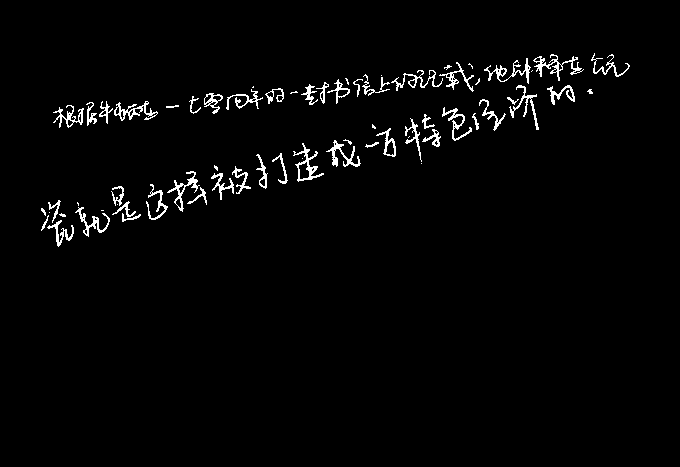 根据牛顿在一七零四年的一封书信上的记载,他解释在公元
瓷就是这样被打造成一方特色经济的.